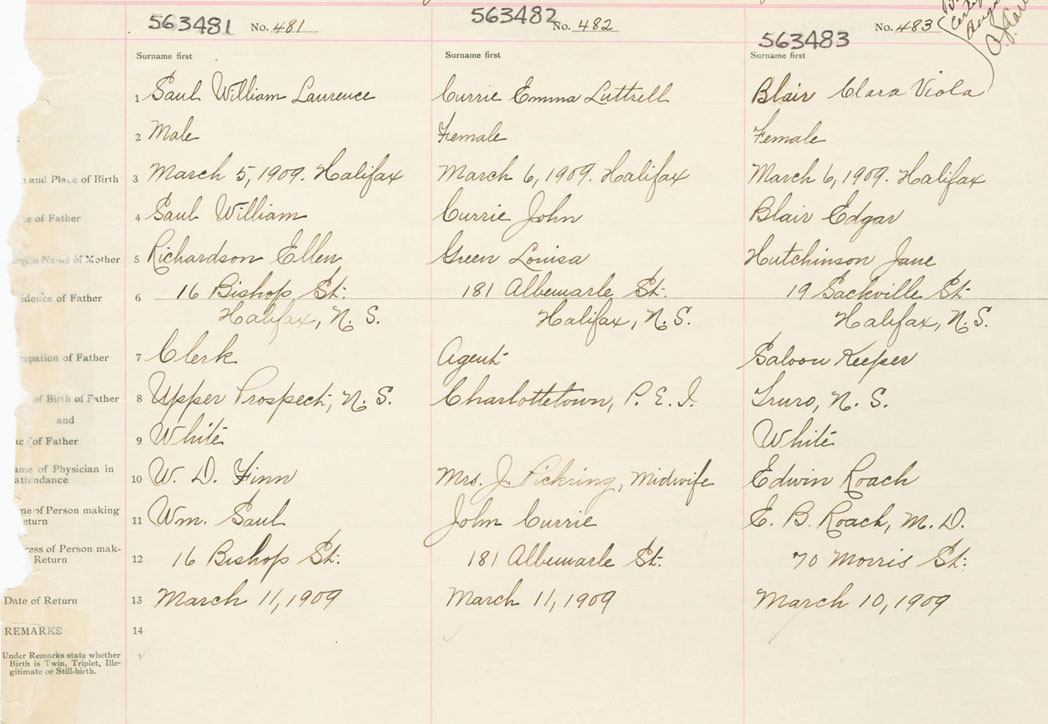 563481 No. 481
563482 No. 482
563483 No. 483
Surname first Surname first Surname first
1 Saul William Laurence Currie Emma Luttrell Blair Clara Viola
2 Male Female Female
and Place of Birth 3 March 5, 1909. Halifax March 6, 1909. Halifax March 6, 1909. Halifax
of Father 4 Saul William Currie John Blair Edgar
Name of Mother 5 Richardson Ellen Green Louisa Hutchinson Jane
of Father 6 16 Bishop St. 181 Albemarle St. 19 Sackville St.
Halifax, N. S. Halifax, N. S. Halifax, N. S.
of Father 7 Clerk Agent Saloon Keeper
of Birth of Father 8 Upper Prospect, N. S. Charlottetown, P. E. I. Truro, N. S.
and
of Father 9 White White
of Physician in
attendance 10 W. D. Finn Mrs. J. Pickring, Midwife Edwin Roach
of Person making
11 Wm. Saul John Currie E. B. Roach, M. D.
of Person mak-
Return 12 16 Bishop St. 181 Albemarle St. 70 Morris St.
Date of Return 13 March 11, 1909 March 11, 1909 March 10, 1909
REMARKS 14
Under Remarks state whether
Birth is Twin, Triplet, Ille-
gitimate or Still-birth.